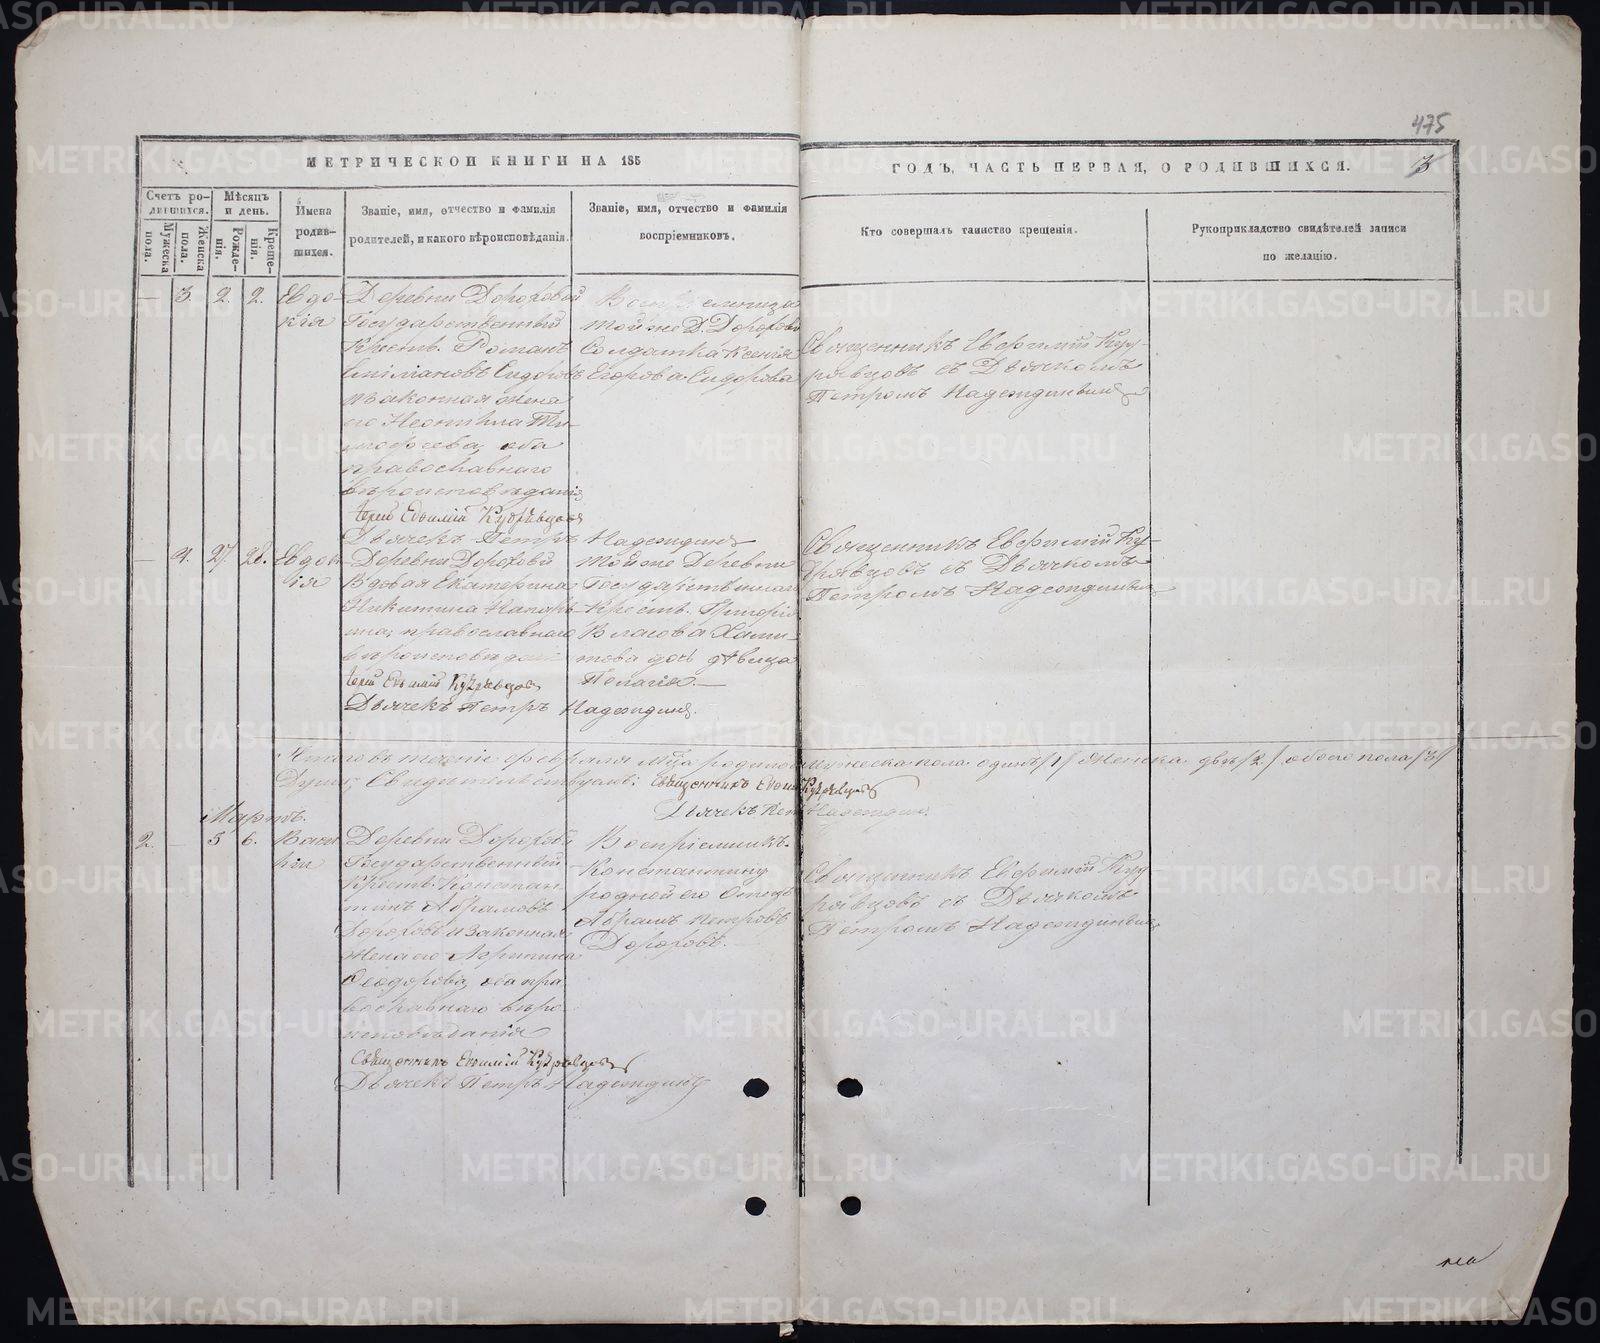 475
МЕТРИЧЕСКОЙ КНИГИ НА 185
ГОДЪ, ЧАСТЬ ПЕРВАЯ, О РОДИВШИХСЯ.
3
Счетъ ро-
дившихся.
Мужеска
пола.
Женска
пола.
Мѣсяцъ
и день.
Рожде-
нія.
Креще-
нія.
Имена
родив-
шихся.
Званіе, имя, отчество и фамилія
родителей, и какого вѣроисповѣданія.
Званіе, имя, отчество и фамилія
воспріемниковъ.
Кто совершалъ таинство крещенія.
Рукоприкладство свидѣтелей записи
по желацію.
— 3. 2. 2.
Евдо-
кія
Деревни Дороховой
Государственный
Крестьян. Романъ
Сидоровъ
и законная жена
его Неонилла Ти-
мофѣева, оба
православнаго
вѣроисповѣданія
Іерей Евѳимій Кудрявцовъ
Дьячекъ Петръ Надеждинъ
той же Д. Дорохов
Солдатка Ксенія
Егорова Сидорова
Священникъ Евфимій Куд-
рявцовъ съ Дьячкомъ
Петромъ Надеждинымъ
— 4. 27. 28.
Евдок
ія
Деревни Дороховой
Вдовая Екатерина
Никитина
православнаго
Іерей Евѳимій Кудрявцовъ
Дьячекъ Петръ Надеждинъ.
той же Деревни
Крестьян. Григорія
Власова
дочь дѣвица
Пелагія.—
Священникъ Евфимій Ку-
дрявцовъ съ Дьячкомъ
Петромъ Надеждинымъ
Итого въ теченіи февраля м-ца родилось мужеска пола одинъ /1/ женска двѣ /2/ обоего пола /3/
Души; Священникъ Евѳимій Кудрявцовъ
Дьячекъ Петръ Надеждинъ.
Мартъ.
2. — 5 6.
Васи
лій
Деревни Дорохов
Государственный
Крестьян. Констан
тинъ Абрамовъ
Дороховъ и законная
жена его
Ѳеодорова, оба пра
вославнаго вѣро
исповѣданія
Священникъ Евѳимій Кудрявцовъ
Дьячекъ Петръ Надеждинъ
Воспріемникъ
Константину
родной его Отецъ
Абрамъ Петровъ
Дороховъ.
Священникъ Евфимій Куд
рявцовъ съ Дьячкомъ
Петромъ Надеждинымъ
METRIKI.GASO-URAL.RU